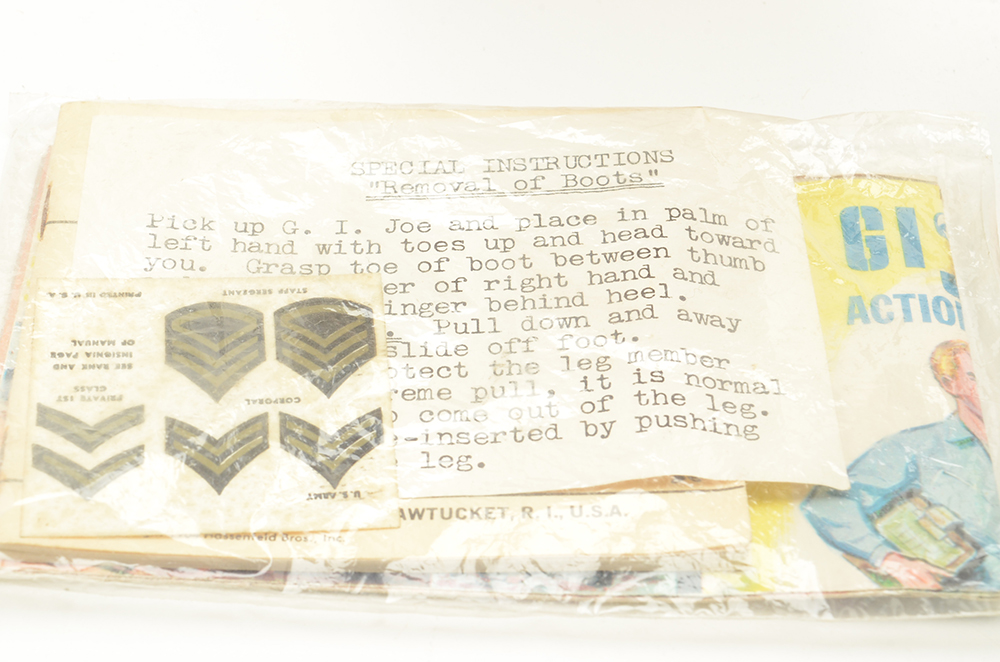 SPECIAL INSTRUCTIONS
"Removal of Boots"
Pick up G. I. Joe and place in palm of
left hand with toes up and head toward
you. Grasp toe of boot between thumb
er of right hand and
inger behind heel.
. Pull down and away
slide off foot.
otect the leg member
reme pull, it is normal
o come out of the leg.
e-inserted by pushing
leg.
PRINTED IN U.S.A.
STAFF SERGEANT
SEE RANK AND
INSIGNIA PAGE
OF MANUAL
PRIVATE 1ST
CLASS
CORPORAL
U.S. ARMY
AWTUCKET, R. I., U.S.A.
Hassenfeld Bros., Inc.
GI
ACTIO